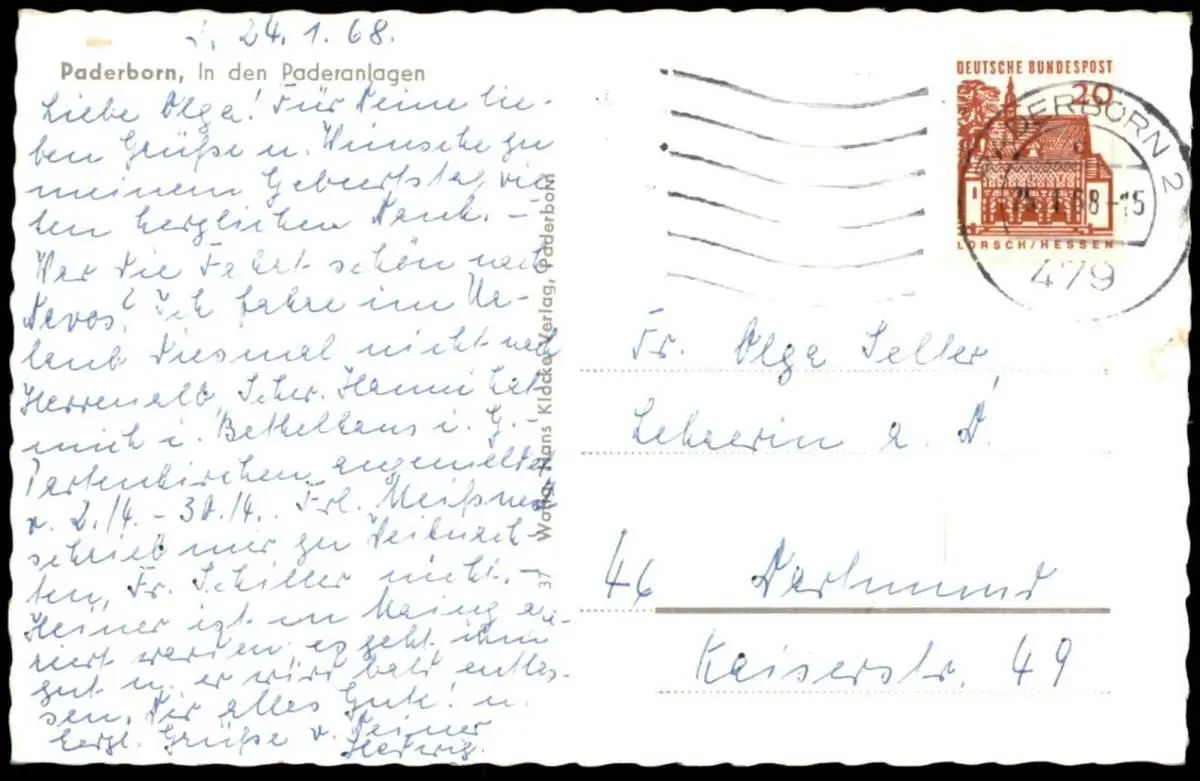 24.1.68.
Paderborn, In den Paderanlagen
Liebe Olga! Für Deine lie-
ben Grüße u. Wünsche zu
meinem Geburtstag vie-
len herzlichen Dank. -
War die Fahrt schön nach
Davos? Ich fahre im Ur-
laub diesmal nicht nach
Herrenalb, Schw. Hanni hat
mich i. Bethelhaus i. G.-
Partenkirchen angemeldet
v. 2./4. - 30./4. Frl. Meißner
schrieb mir zu Weihnach-
ten, Fr. Schiller nicht. -
Heiner ist in Mainz
operiert worden es geht ihm
gut u. er wird bald entlas-
sen. Dir alles Gute! u.
herzl. Grüße v. Deiner
Hedwig.
Wolfg. Hans Klocke Verlag, Paderborn
37
DEUTSCHE BUNDESPOST
20
LORSCH/HESSEN
PADERBORN 2
25.1.68-15
479
Fr. Olga Selter,
Lehrerin a. D.
46 Dortmund
Kaiserstr. 49